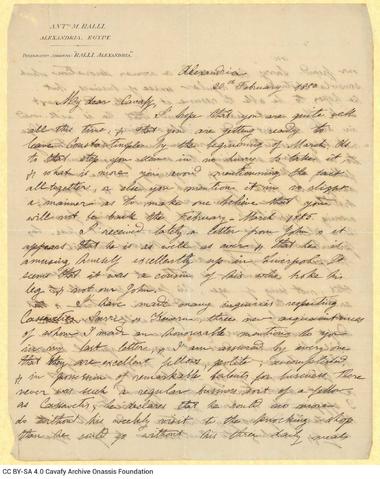 ANT. M. RALLI
ALEXANDRIA, EGYPT.
TELEGRAPHIC ADDRESS: "RALLI, ALEXANDRIA."
Alexandria
February
My dear Cavafy,
I hope that you are quite well
all this time, & that you are getting ready to
leave Constantinople by the beginning of March. As
to that step you seem in no hurry to take it
& what is more you avoid mentioning the fact
alltogether, or else you mention it in so slight
a manner as to make one believe that you
will not be back this February - March 1885.
I received lately a letter from John & it
appears that he is as well as ever & that he is
amusing himself excellently up in Liverpool. It
seems that it was a cousin of his who broke his
leg & not our John.
I have made many inquiries respecting
or three new acquaintances
of whom I made an honorable mention to you
in my last letter, & I am assured by everyone
that they are excellent fellows, polite, accomplished
& in possession of remarkable talents for business. There
never was such a regular business sort of a fellow
as he declares that he could no more
do without his weekly visit to the shop
than he could go without his three daily meals
CC BY-SA 4.0 Cavafy Archive Onassis Foundation